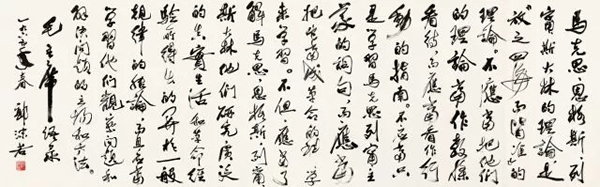 馬克思恩格斯、列
寧斯大林的理論是
“放之四海而皆準”的
理論。不應當把他們
的理論當作教條
看待,而應當看作行
動的指南。不應當只
是學習馬克思列寧主
義的詞句,而應當
把它當成革命的科學
來學習。不但應當了
解馬克思、恩格斯、列寧
斯大林他們研究廣泛
的真實生活和革命經
驗所得出的關於一般
規律的結論,而且應當
學習他們觀察問題和
解決問題的立場和方法。
毛主席語錄
春 郭沫若